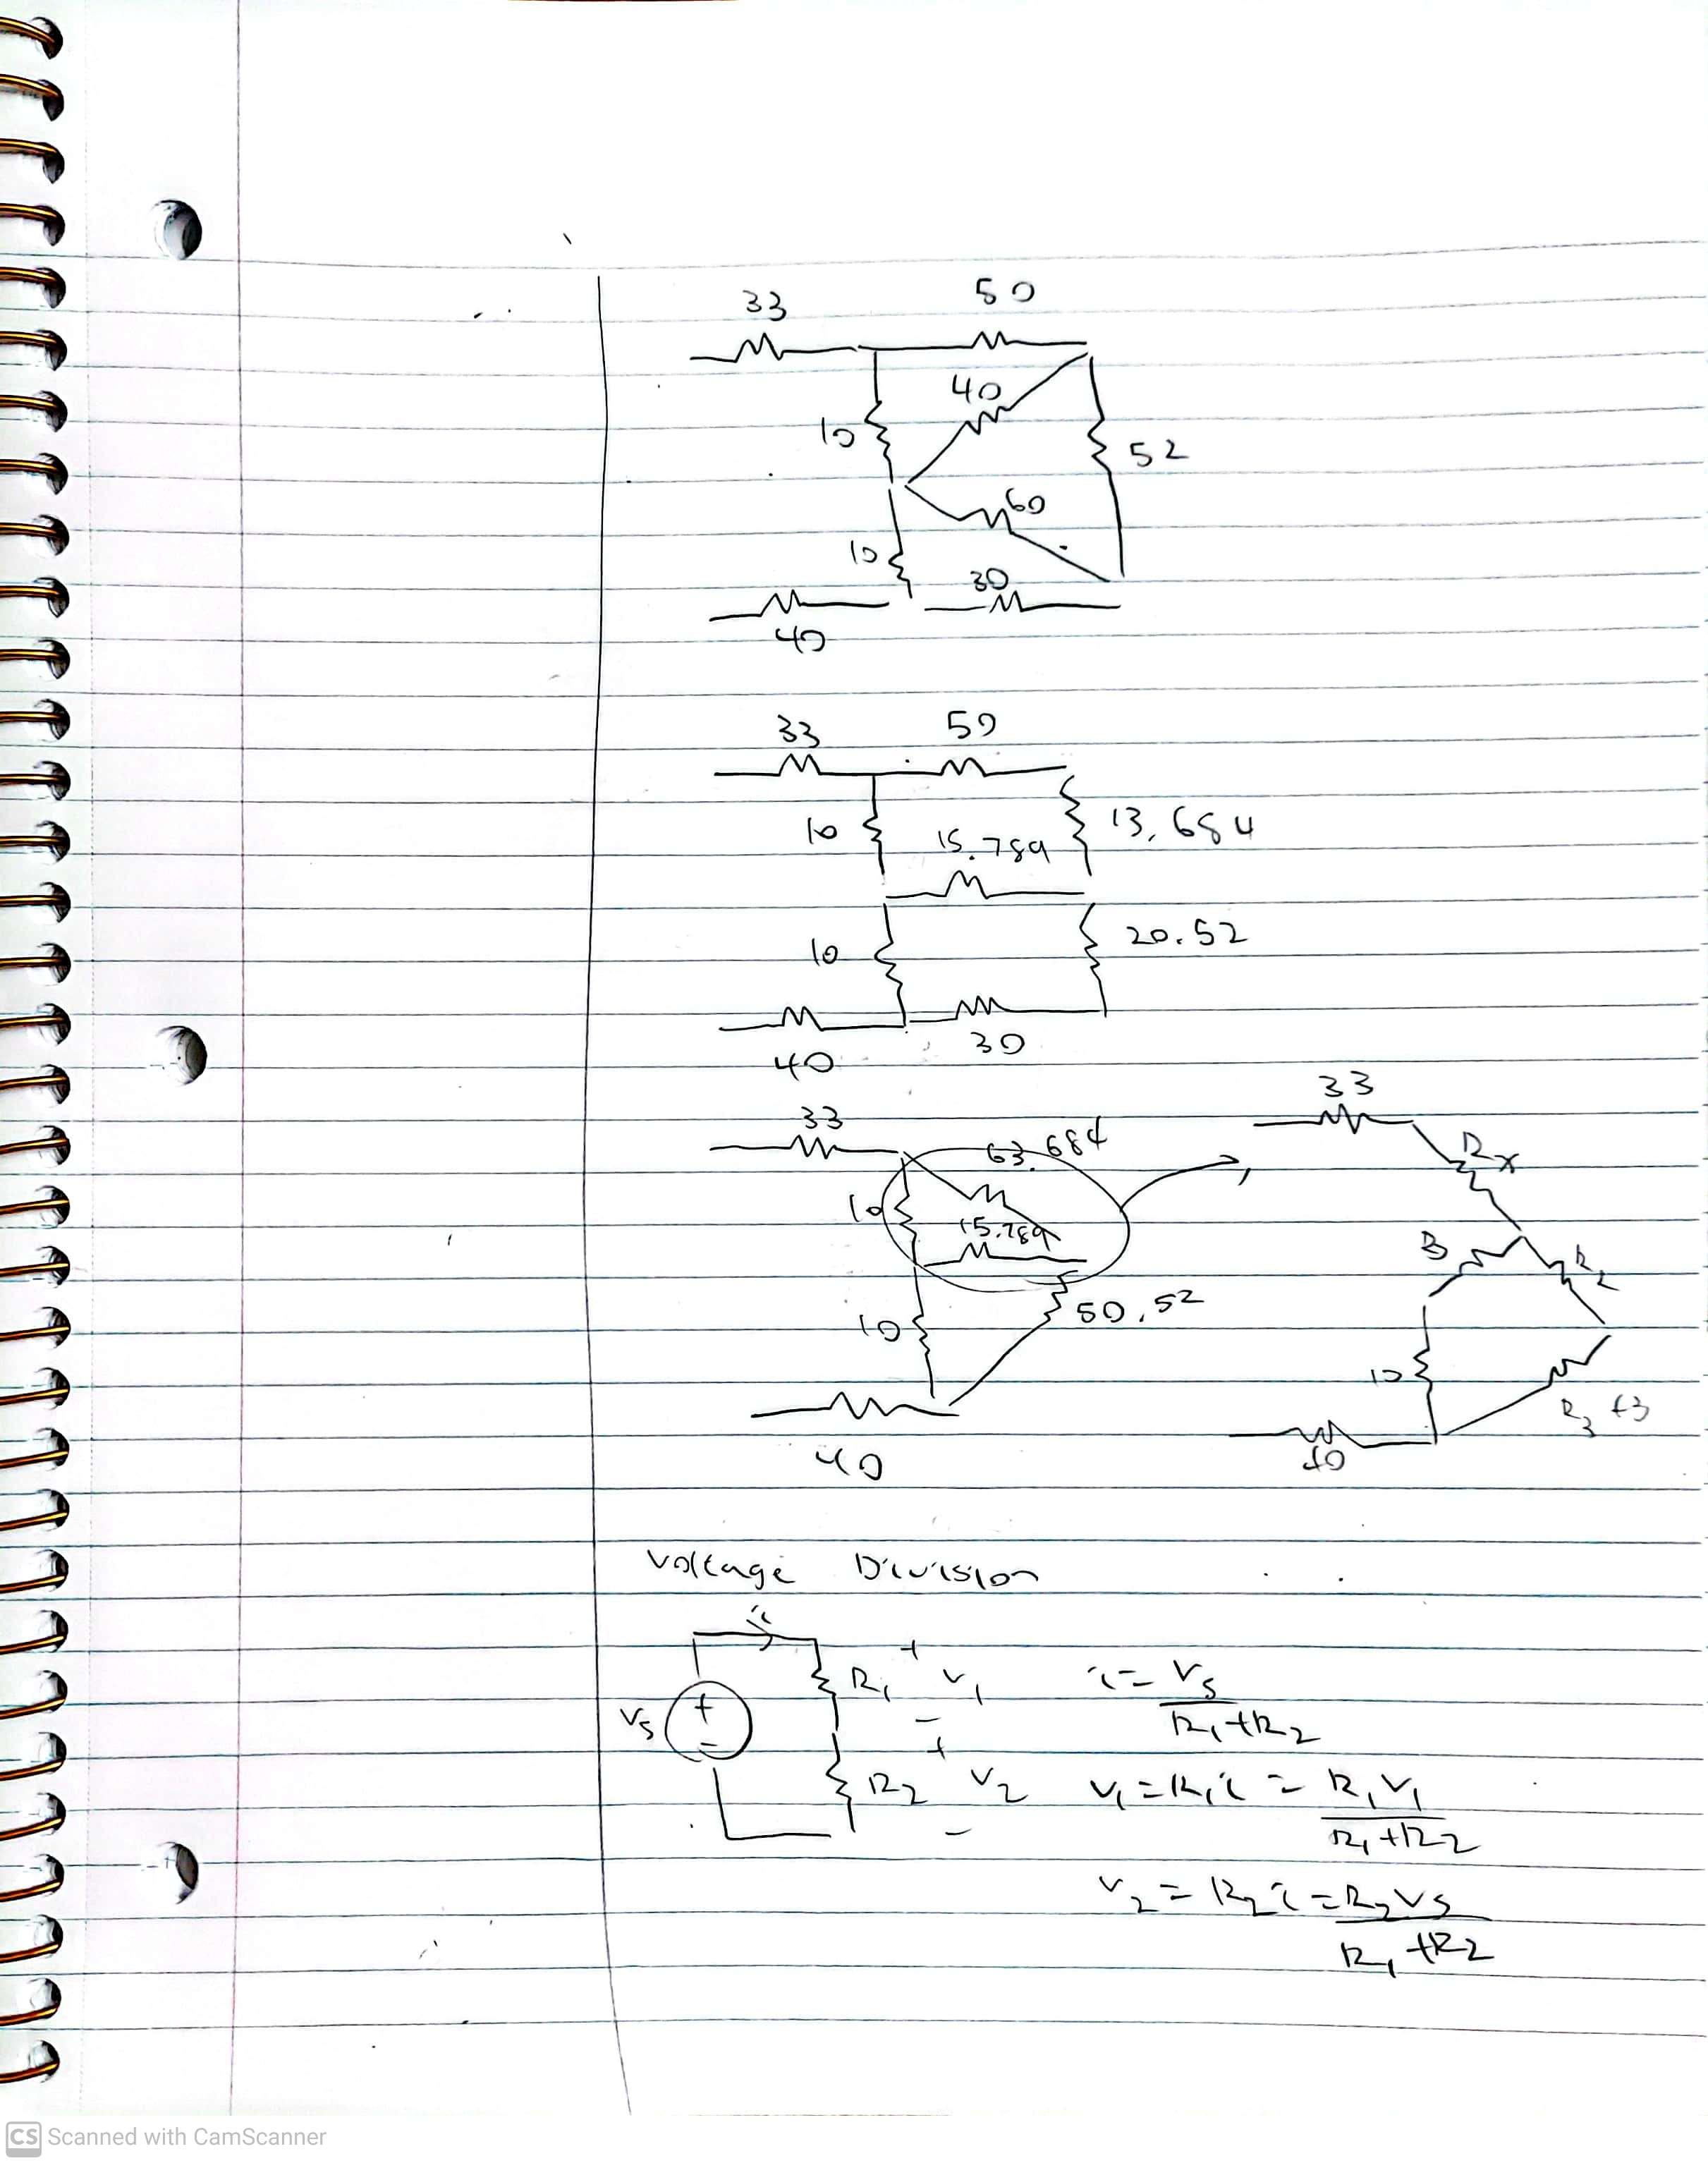 33 50
40
10 52
60
10
30
40
33 50
10 15.789 13.684
10 20.52
40 30
33 63.684
10 15.789
10 50.52
40
33
Rx
B R2
10
R3 +3
40
Voltage Division
i
Vs + - R1 + V1 - i = Vs / R1+R2
R2 + V2 - V1 = R1 i = R1 V1 / R1+R2
V2 = R2 i = R2 Vs / R1+R2
CS Scanned with CamScanner